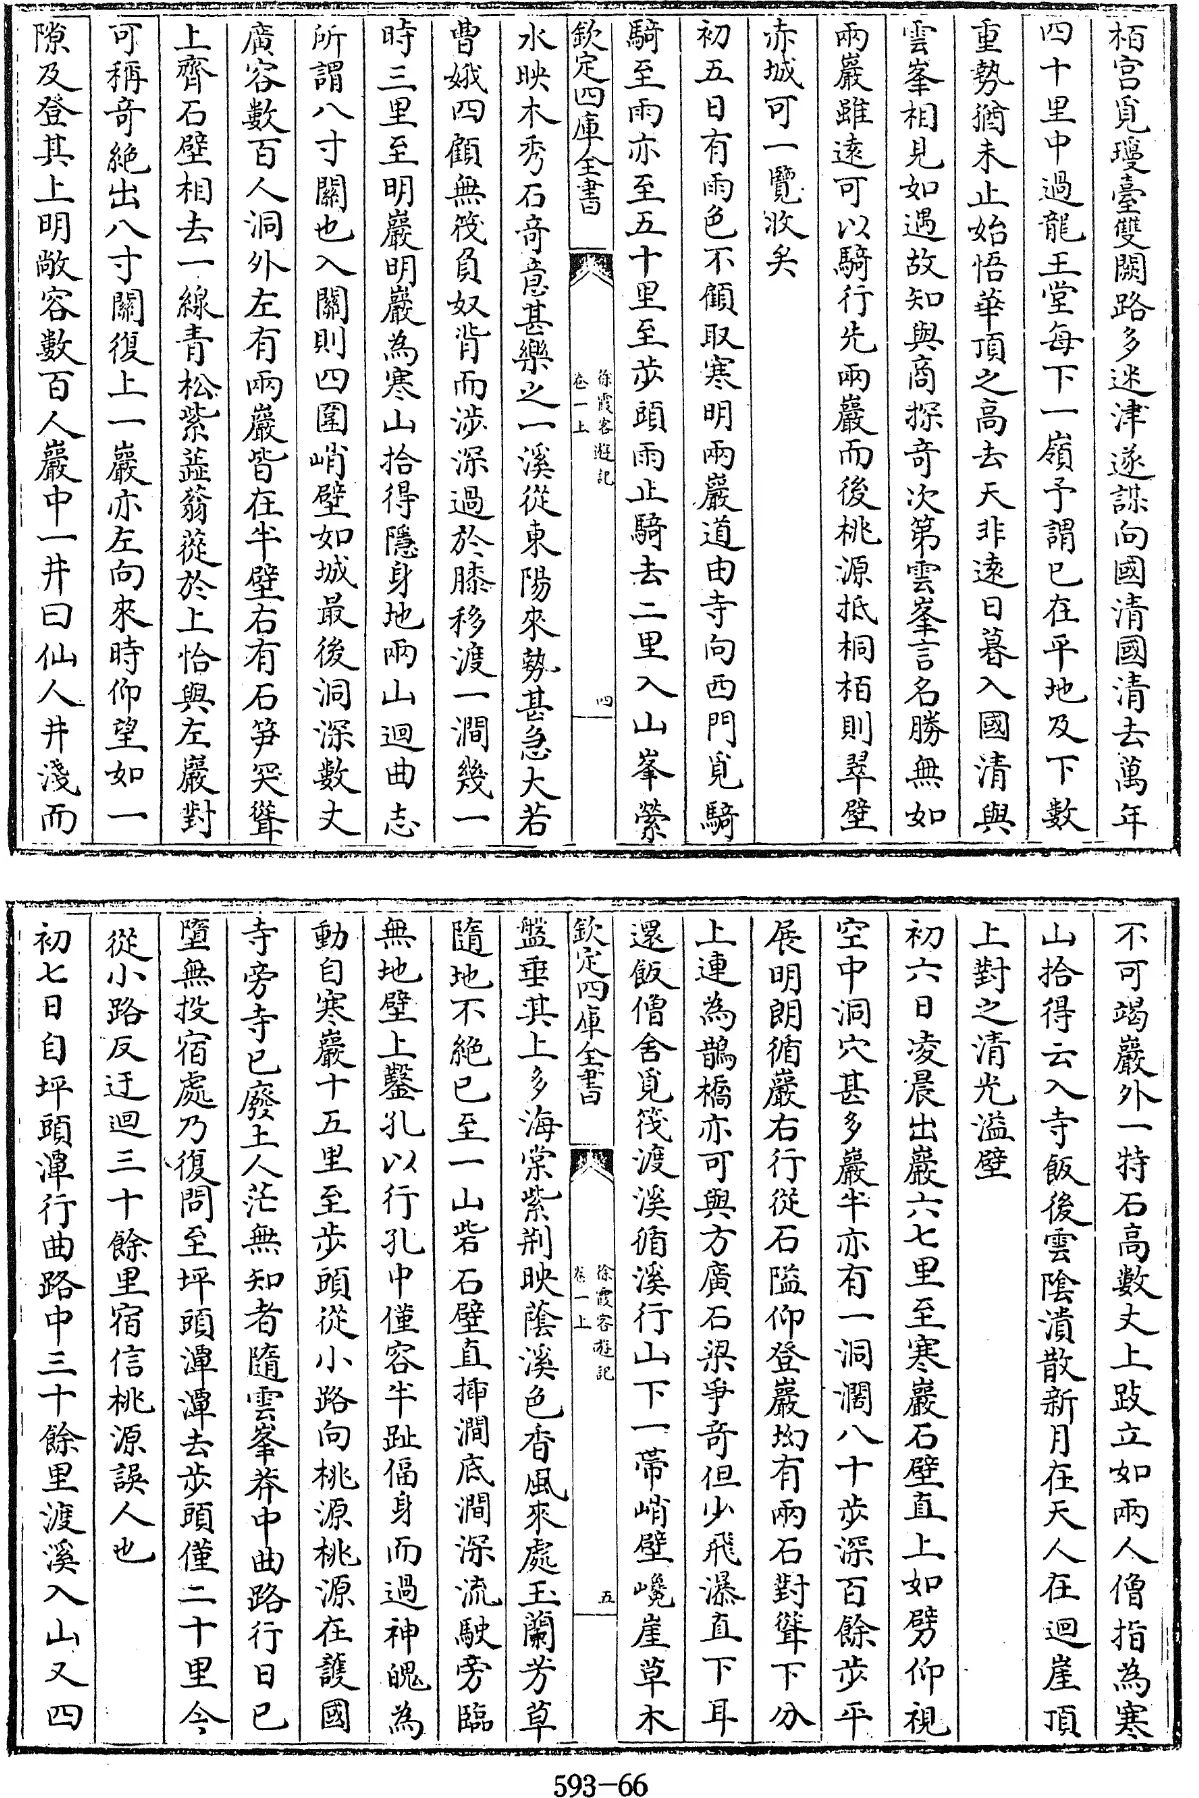 栢宫覓瓊臺雙闕路多迷津遂謀向國清國清去萬年
四十里中過龍王堂每下一嶺予謂已在平地及下數
重勢猶未止始悟華頂之高去天非遠日暮入國清與
雲峯相見如遇故知與商探奇次第雲峯言名勝無如
兩巖雖遠可以騎行先兩巖而後桃源抵桐栢則翠壁
赤城可一覽收矣
初五日有雨色不顧取寒明兩巖道由寺向西門覓騎
騎至雨亦至五十里至步頭雨止騎去二里入山峯縈
欽定四庫全書
徐霞客遊記
卷一上
四
水映木秀石奇意甚樂之一溪從東陽來勢甚急大若
曹娥四顧無筏負奴背而涉深過於膝移渡一澗幾一
時三里至明巖明巖為寒山拾得隱身地兩山迴曲志
所謂八寸關也入關則四圍峭壁如城最後洞深數丈
廣容數百人洞外左有兩巖皆在半壁右有石笋突聳
上齊石壁相去一線青松紫蕋蓊蓯於上恰與左巖對
可稱奇絶出八寸關復上一巖亦左向來時仰望如一
隙及登其上明敞容數百人巖中一井曰仙人井淺而
不可竭巖外一特石高數丈上跂立如兩人僧指為寒
山拾得云入寺飯後雲陰潰散新月在天人在迴崖頂
上對之清光溢壁
初六日凌晨出巖六七里至寒巖石壁直上如劈仰視
空中洞穴甚多巖半亦有一洞濶八十步深百餘步平
展明朗循巖右行從石隘仰登巖坳有兩石對聳下分
上連為鵲橋亦可與方廣石梁爭奇但少飛瀑直下耳
還飯僧舍覓筏渡溪循溪行山下一帶峭壁巉崖草木
欽定四庫全書
徐霞客遊記
卷一上
五
盤垂其上多海棠紫荆映蔭溪色香風來處玉蘭芳草
隨地不絶已至一山砦石壁直揷澗底澗深流駛旁臨
無地壁上鑿孔以行孔中僅容半趾偪身而過神魄為
動自寒巖十五里至步頭從小路向桃源桃源在護國
寺旁寺已廢土人茫無知者隨雲峯莽中曲路行日已
墮無投宿處乃復問至坪頭潭潭去步頭僅二十里今
從小路反迂迴三十餘里宿信桃源誤人也
初七日自坪頭潭行曲路中三十餘里渡溪入山又四
593-66